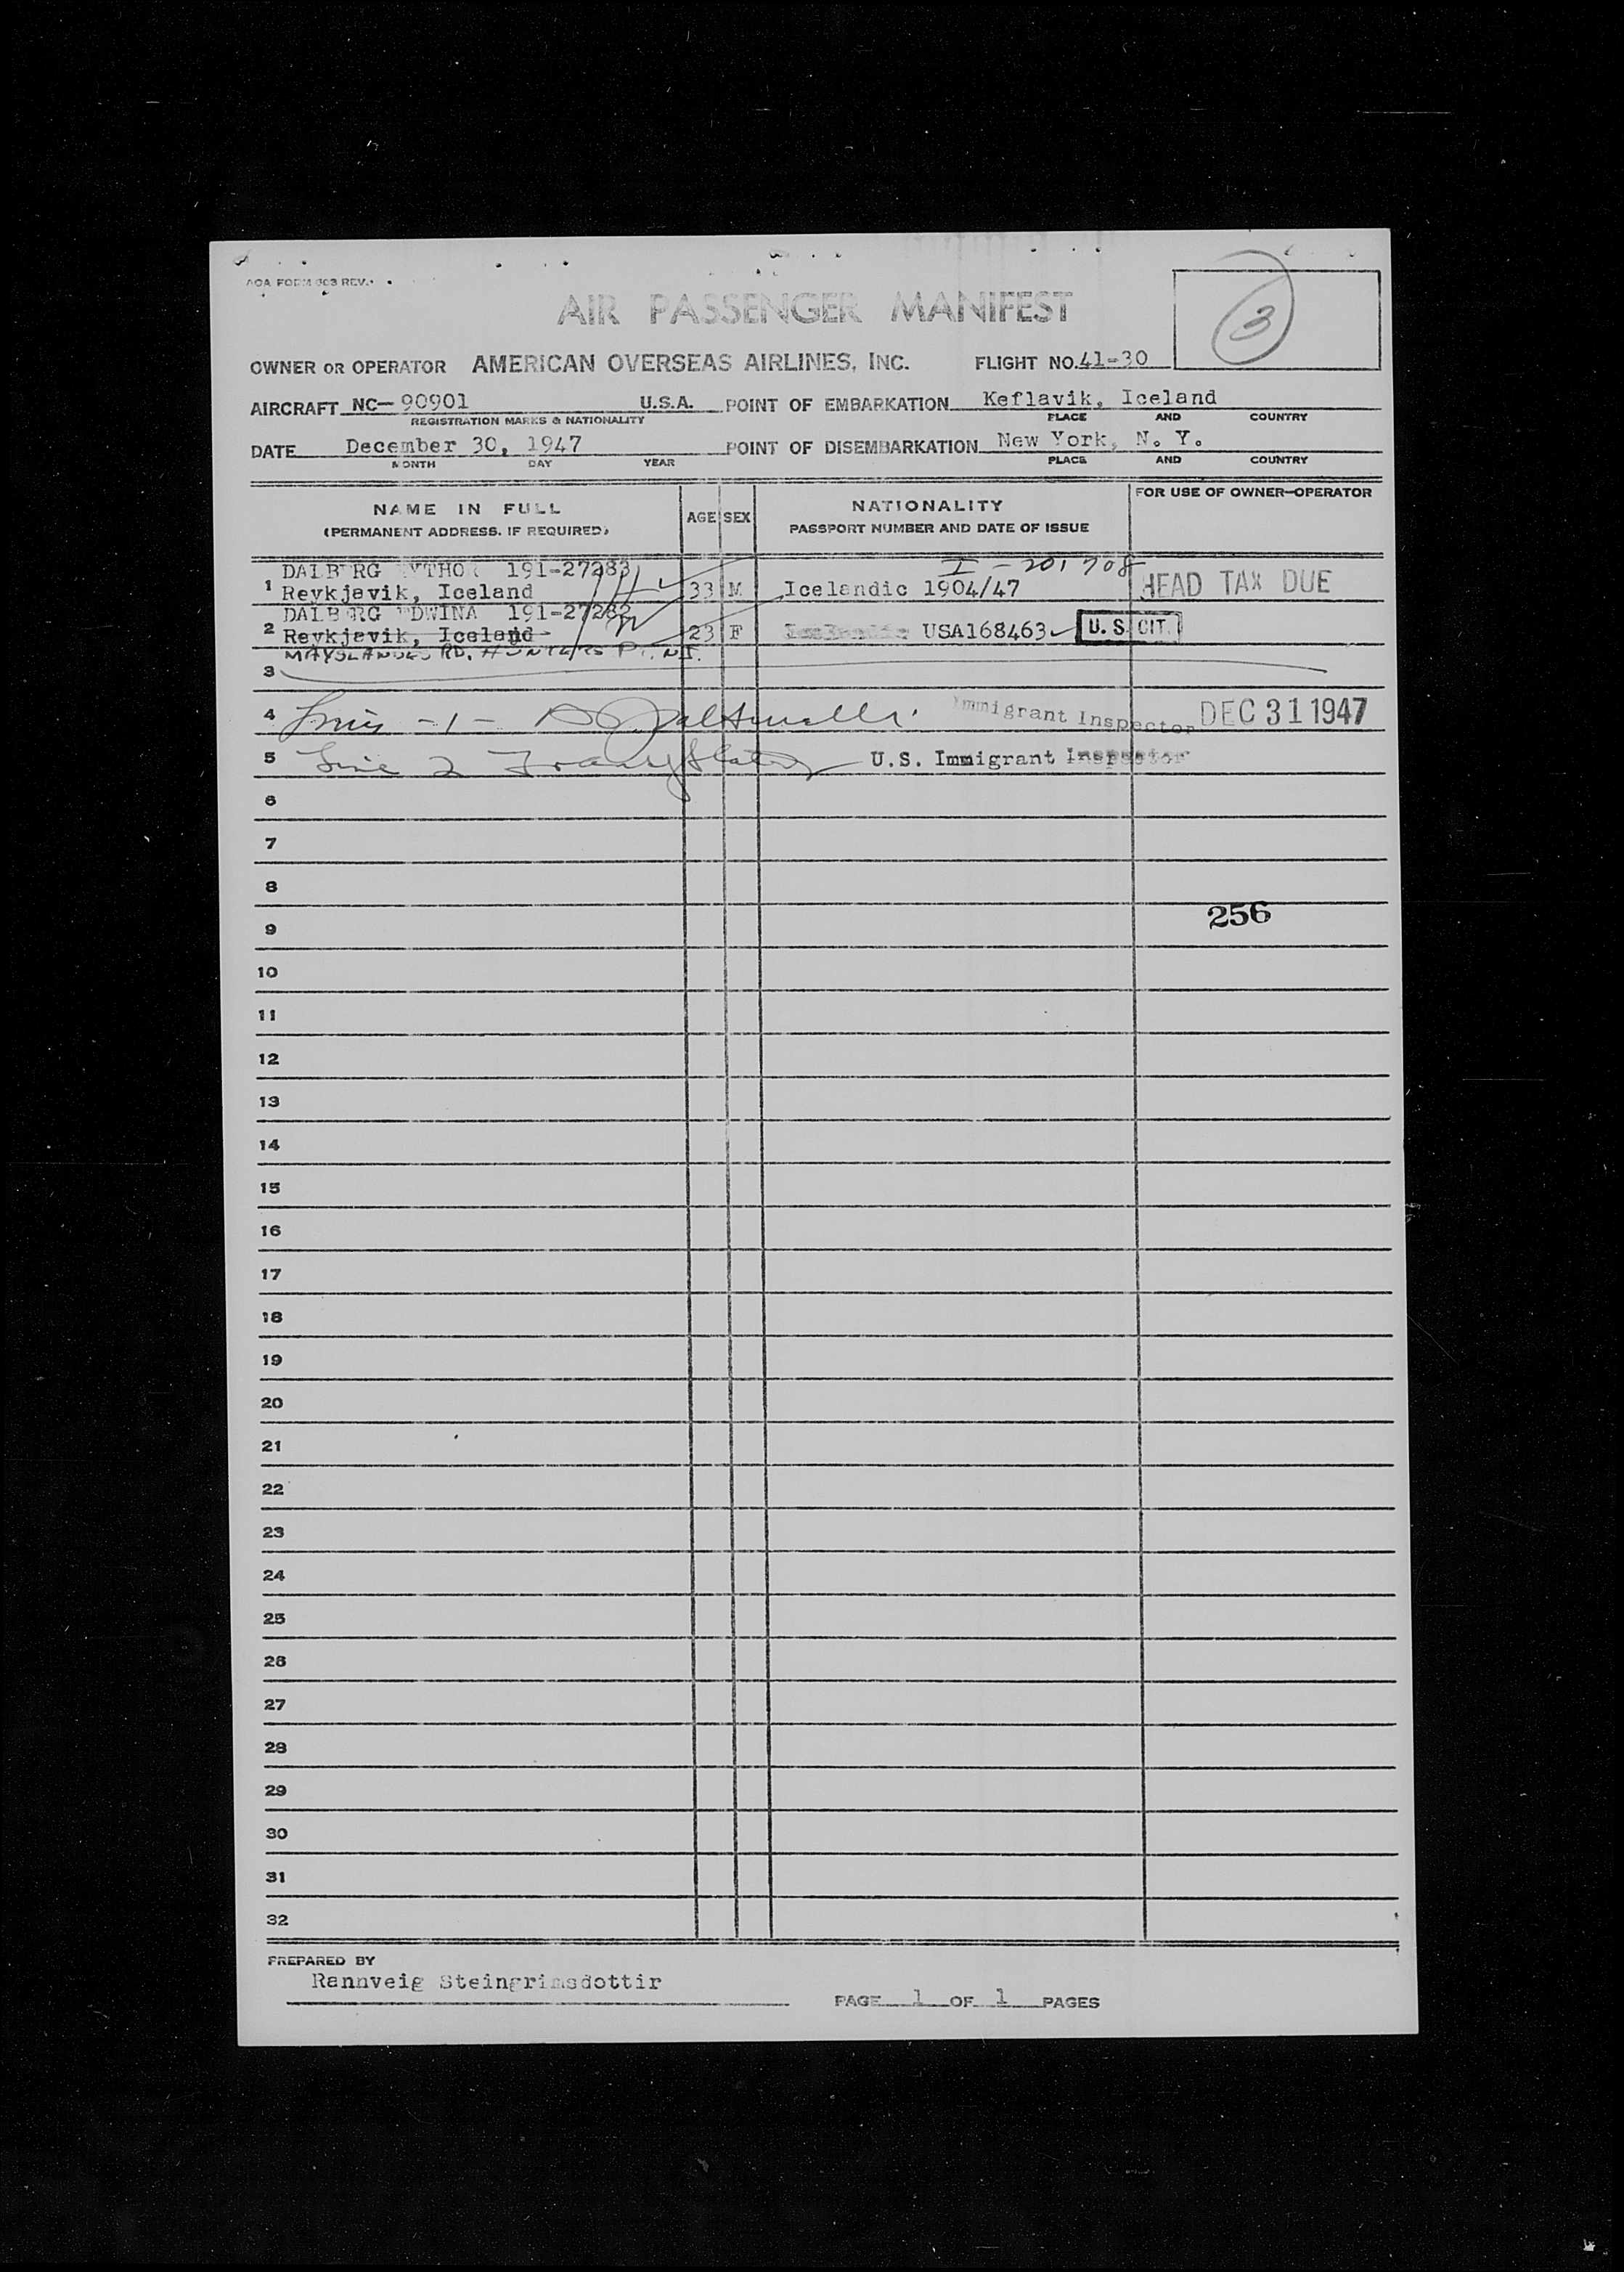 AOA FORM 003 REV.
3
AIR PASSENGER MANIFEST
OWNER OR OPERATOR AMERICAN OVERSEAS AIRLINES, INC. FLIGHT NO. 41-30
AIRCRAFT NC- 90901 U.S.A. POINT OF EMBARKATION Keflavik, Iceland
REGISTRATION MARKS & NATIONALITY PLACE AND COUNTRY
DATE December 30, 1947 POINT OF DISEMBARKATION New York, N. Y.
MONTH DAY YEAR PLACE AND COUNTRY
NAME IN FULL AGE SEX NATIONALITY FOR USE OF OWNER-OPERATOR
(PERMANENT ADDRESS, IF REQUIRED) PASSPORT NUMBER AND DATE OF ISSUE
DALBERG 191-27283 I-201708
1 Reykjavik, Iceland 33 M Icelandic 1904/47 HEAD TAX DUE
DALBERG EDWINA 191-27282
2 Reykjavik, Iceland 23 F Icelandic USA168463 U.S. CIT.
MAYSLANDES RD. HUNTERS
3
4 -1- Immigrant Inspector DEC 31 1947
5 Line 2 U.S. Immigrant Inspector
6
7
8
9 256
10
11
12
13
14
15
16
17
18
19
20
21
22
23
24
25
26
27
28
29
30
31
32
PREPARED BY
Rannveig Steingrimsdottir
PAGE 1 OF 1 PAGES